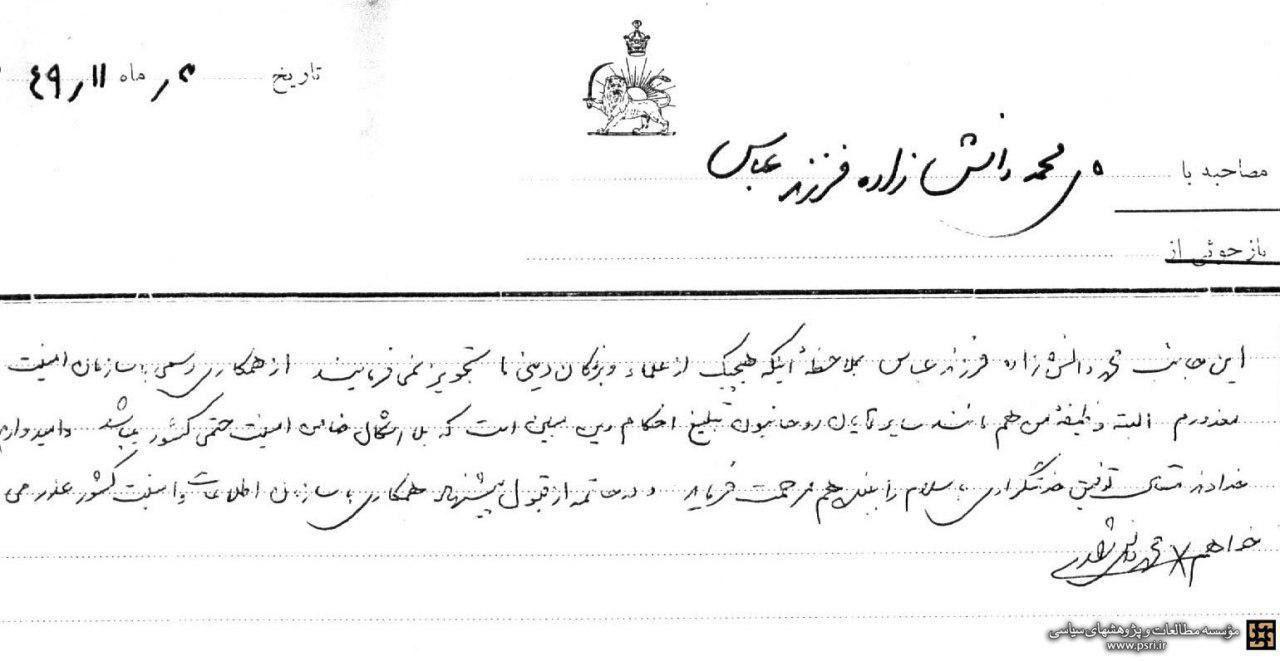 تاریخ ۵ ر ماه ۱۱ ر ۴۹
مصاحبه با محمد دانش زاده فرزند عباس
بازجوئی از
این جانب محمد دانش زاده فرزند عباس بملاحظهٔ اینکه هیچیک از علماء و بزرگان دینی ما تجویز نمی فرمایند از همکاری رسمی با سازمان امنیت
معذورم البته وظیفهٔ من هم مانند سایر آقایان روحانیون تبلیغ احکام دین مبین است که بلا اشکال ضامن امنیت حتمی کشور میباشد و امیدوارم
خداوند متعال توفیق خدمتگزاری باسلام را بمن هم مرحمت فرماید و در خاتمه از قبول پیشنهاد همکاری با سازمان اطلاعات و امنیت کشور عذر می
خواهم محمد دانش زاده
مؤسسه مطالعات و پژوهشهای سیاسی
www.psri.ir